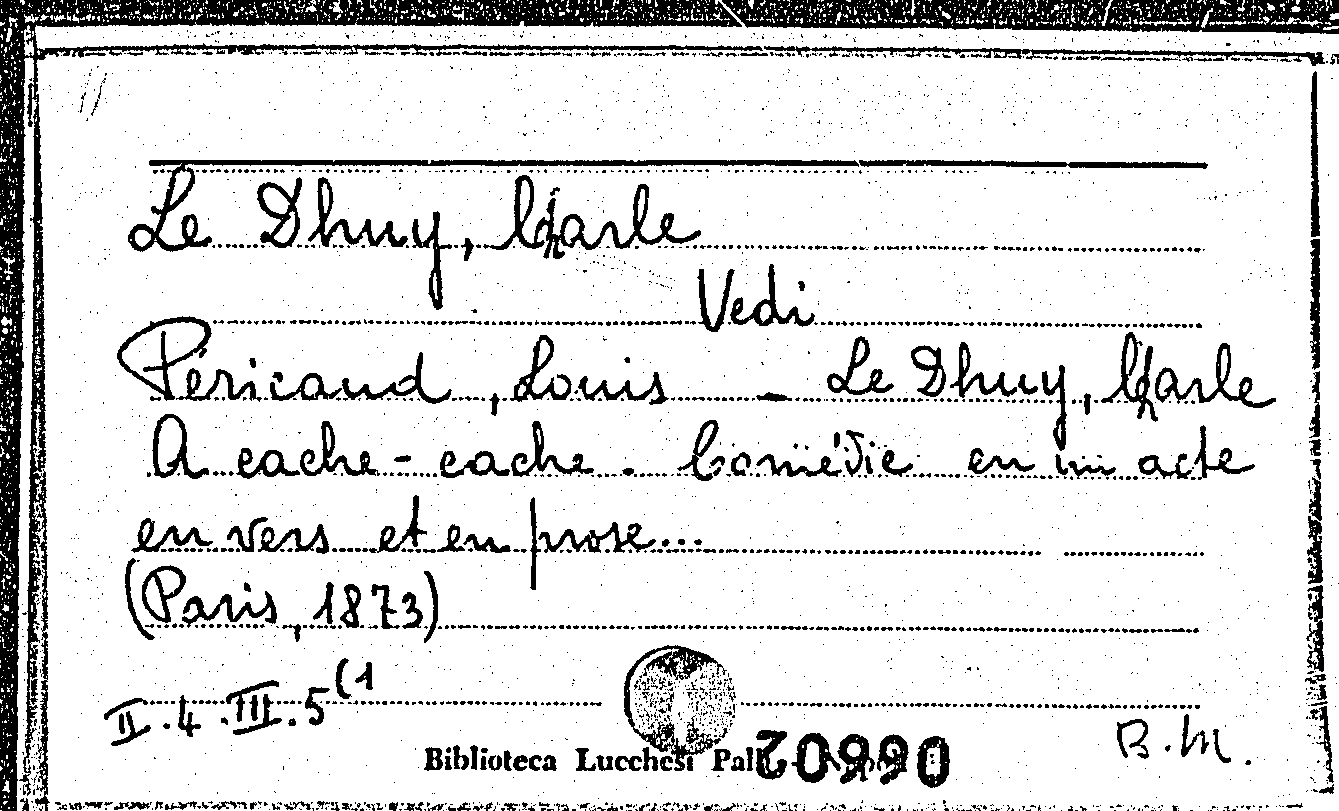 Le Dhuy, Charle
Vedi
Péricaud, Louis - Le Dhuy, Charle
A cache-cache. Comédie en un acte
en vers et en prose...
(Paris, 1873)
II.4.III.5(1
Biblioteca Lucchesi Palli 20990
B.M.